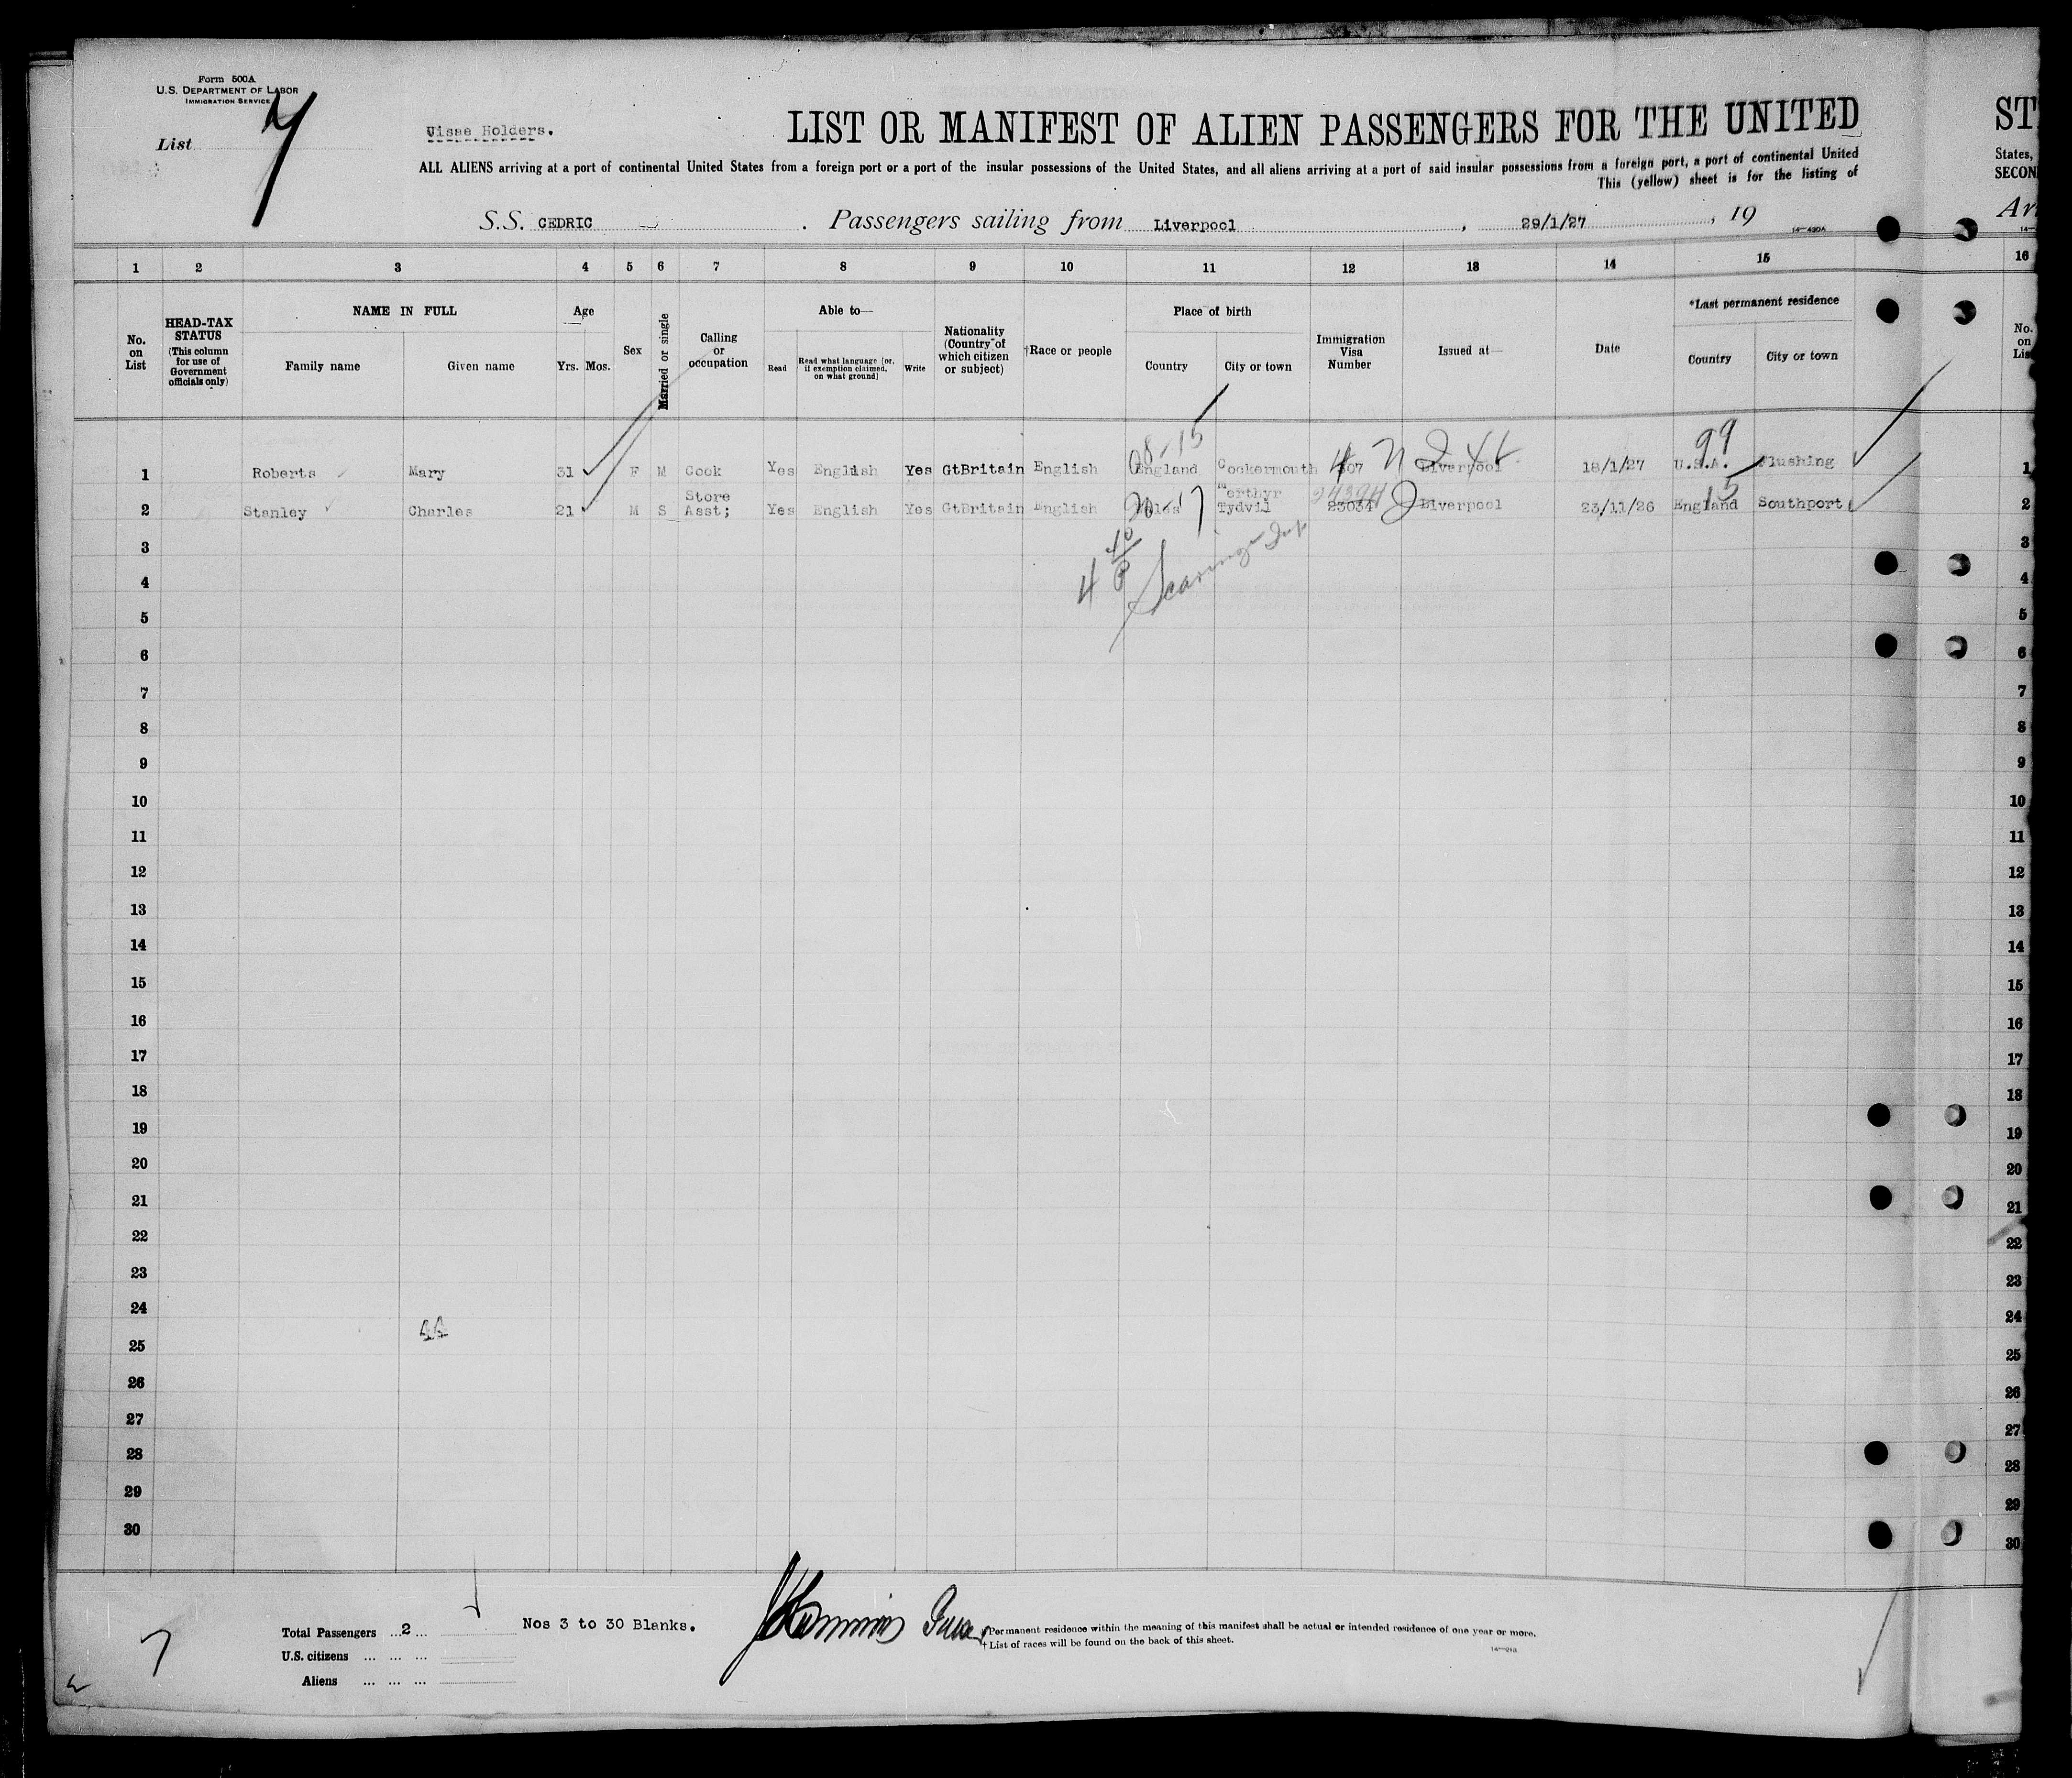 Form 500A
U.S. DEPARTMENT OF LABOR
IMMIGRATION SERVICE
List 7
Visae Holders.
LIST OR MANIFEST OF ALIEN PASSENGERS FOR THE UNITED
ALL ALIENS arriving at a port of continental United States from a foreign port or a port of the insular possessions of the United States, and all aliens arriving at a port of said insular possessions from a foreign port, a port of continental United
This (yellow) sheet is for the listing of
S.S. CEDRIC . Passengers sailing from Liverpool , 29/1/27 , 19
14—430A
ST
States,
SECON
Ar
14—
1 2 3 4 5 6 7 8 9 10 11 12 13 14 15 16
No. on List
HEAD-TAX STATUS
(This column for use of Government officials only)
NAME IN FULL
Family name Given name
Age
Yrs. Mos.
Sex
Married or single
Calling or occupation
Able to—
Read Read what language (or, if exemption claimed, on what ground) Write
Nationality (Country of which citizen or subject)
†Race or people
Place of birth
Country City or town
Immigration Visa Number
Issued at—
Date
*Last permanent residence
Country City or town
No. on Lis
08-15 99
1 Roberts Mary 31 F M Cook Yes English Yes GtBritain English England Cockermouth 4 Liverpool 18/1/27 U.S.A. Flushing 1
2 Stanley Charles 21 M S Store Asst; Yes English Yes GtBritain English Wales Merthyr Tydvil 23034 Liverpool 23/11/26 England Southport 2
20-17 15
3 3
4 4
5 5
6 6
7 7
8 8
9 9
10 10
11 11
12 12
13 13
14 14
15 15
16 16
17 17
18 18
19 19
20 20
21 21
22 22
23 23
24 24
25 25
26 26
27 27
28 28
29 29
30 30
7
Total Passengers ... 2 ...
U.S. citizens ... ... ...
Aliens ... ... ...
Nos 3 to 30 Blanks.
*Permanent residence within the meaning of this manifest shall be actual or intended residence of one year or more.
†List of races will be found on the back of this sheet.